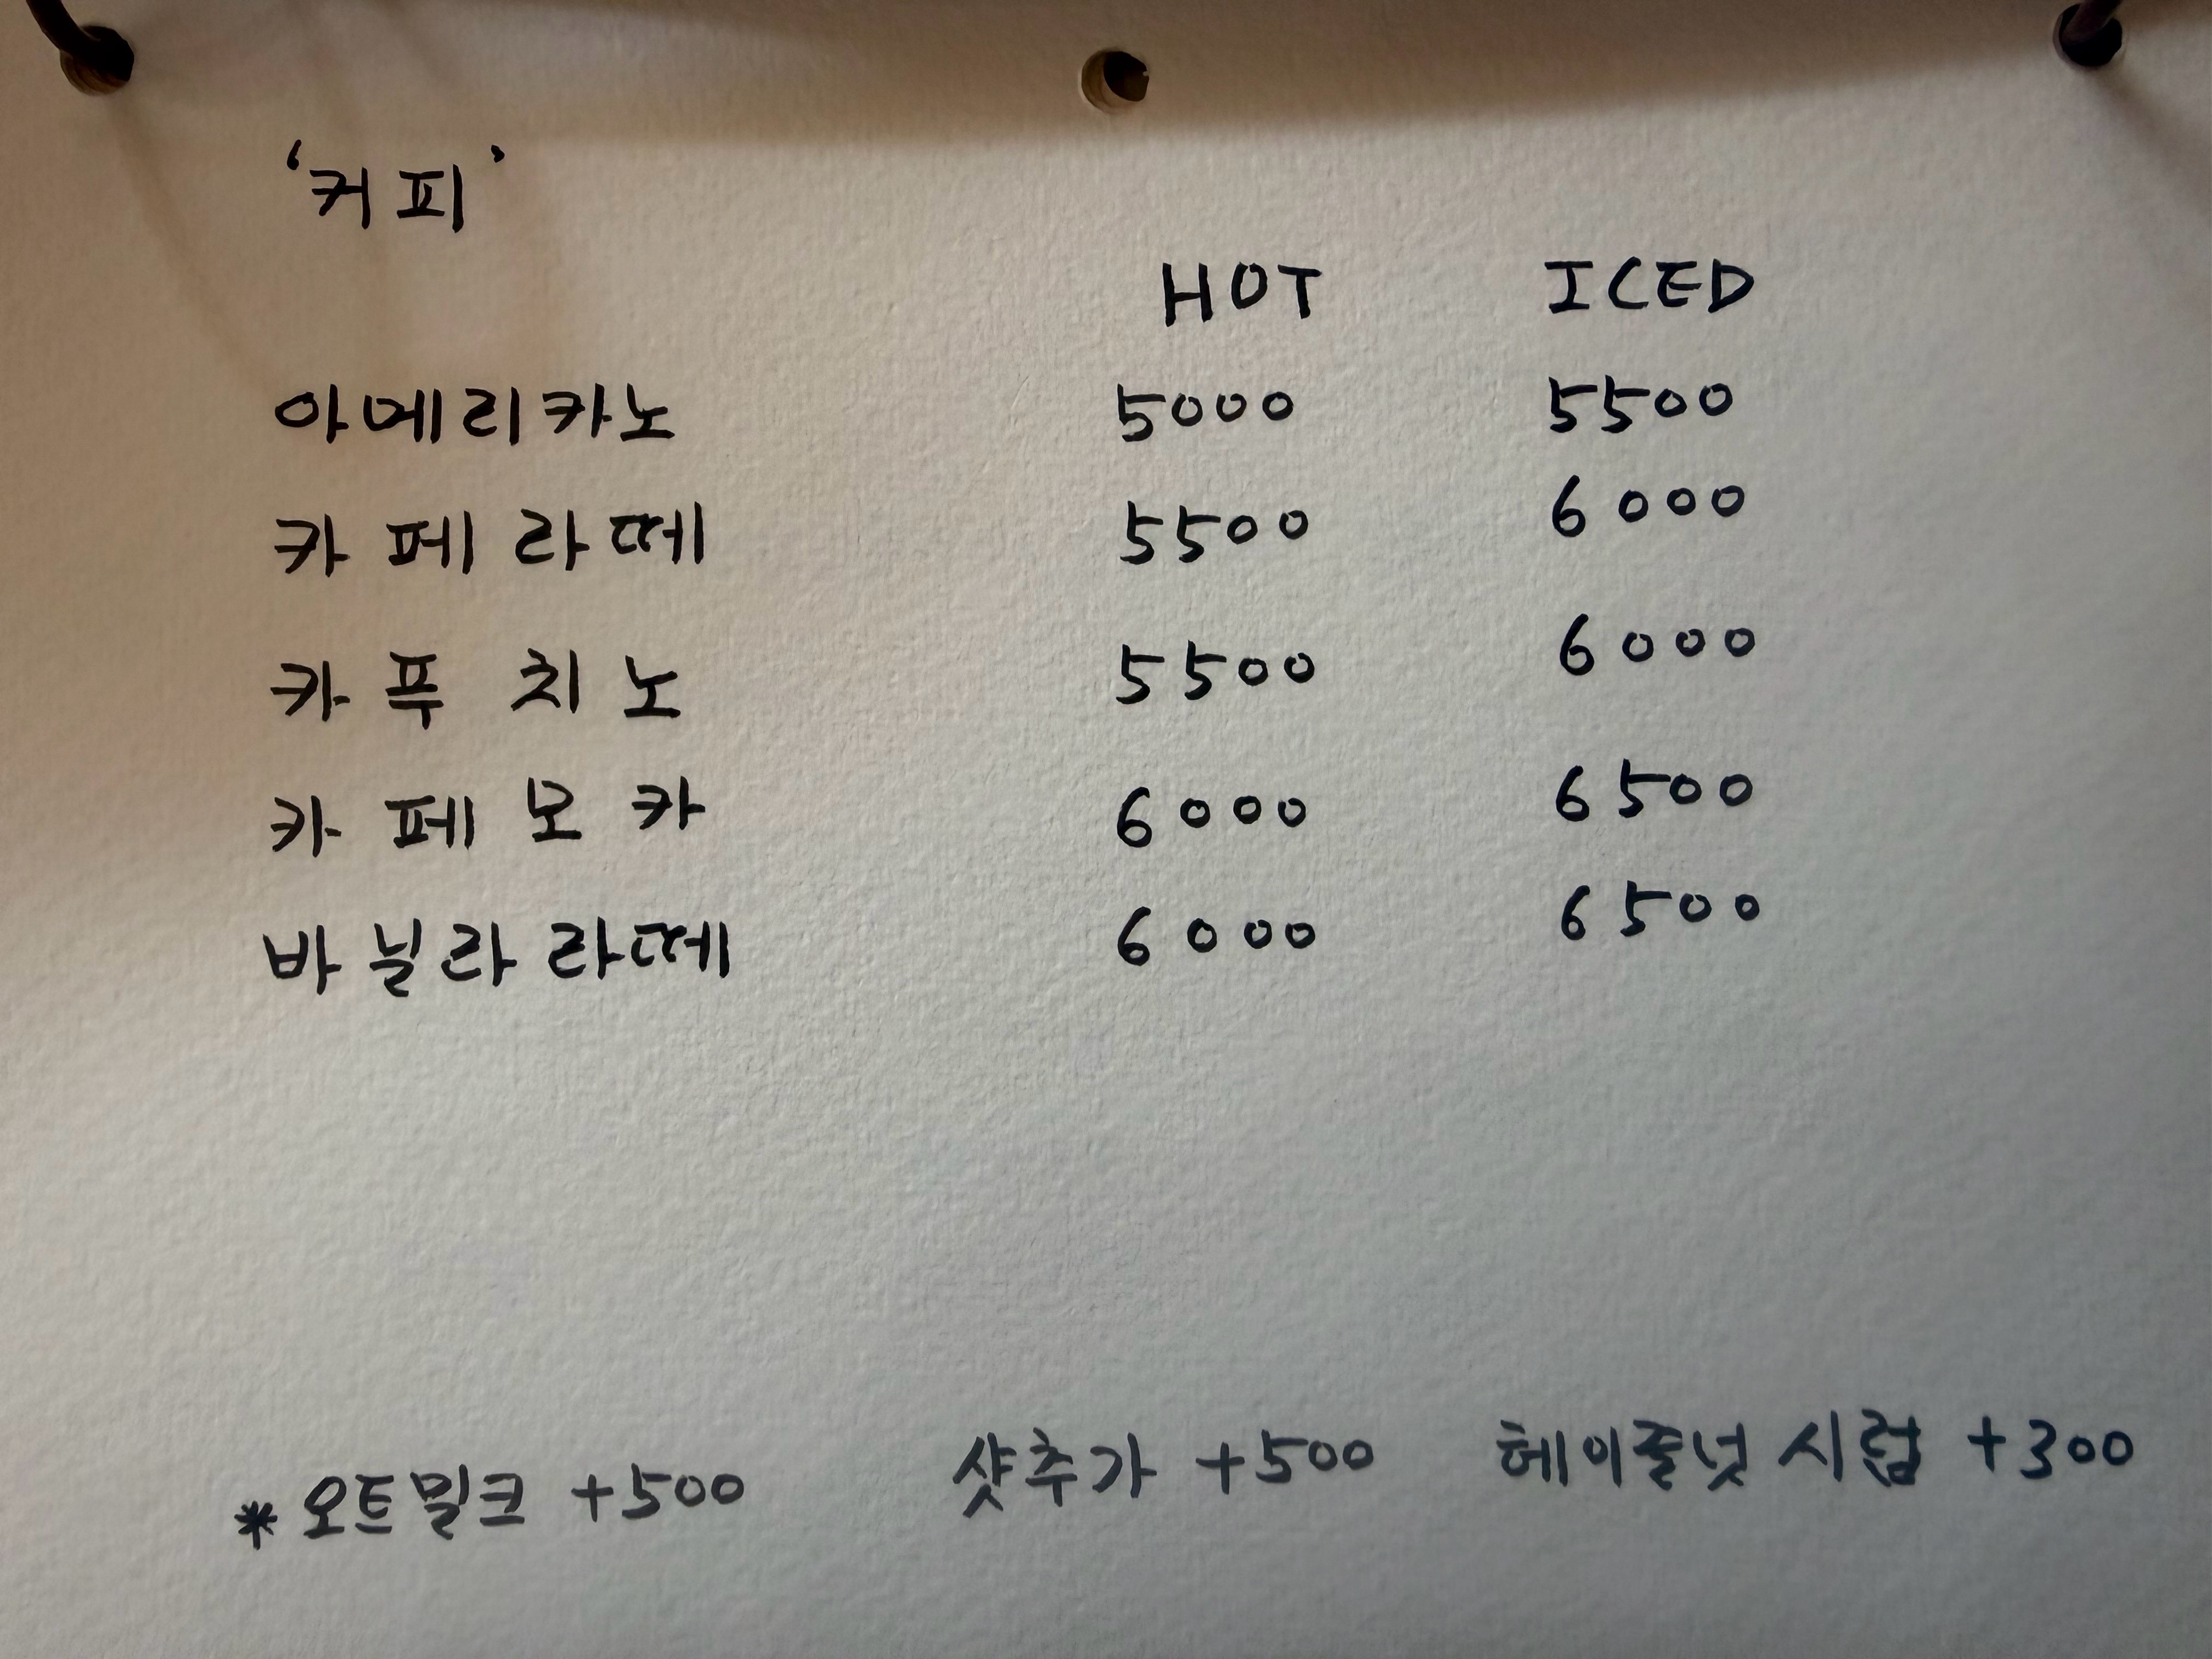 ‘커피’
HOT ICED
아메리카노 5000 5500
카페라떼 5500 6000
카푸치노 5500 6000
카페모카 6000 6500
바닐라라떼 6000 6500
* 오트밀크 +500 샷추가 +500 헤이즐넛 시럽 +300